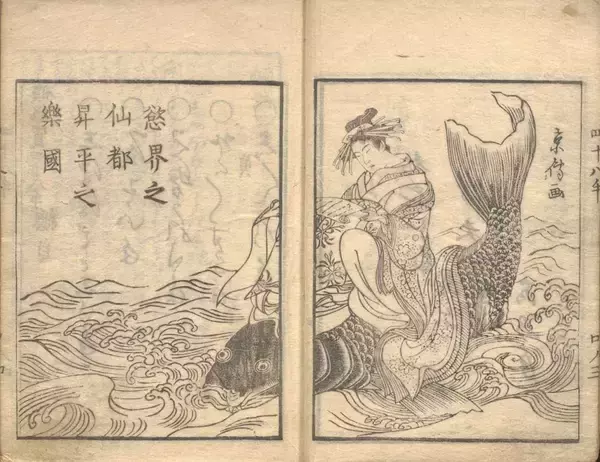 四十八手
京傳画
慾界之
仙都
昇平之
樂國